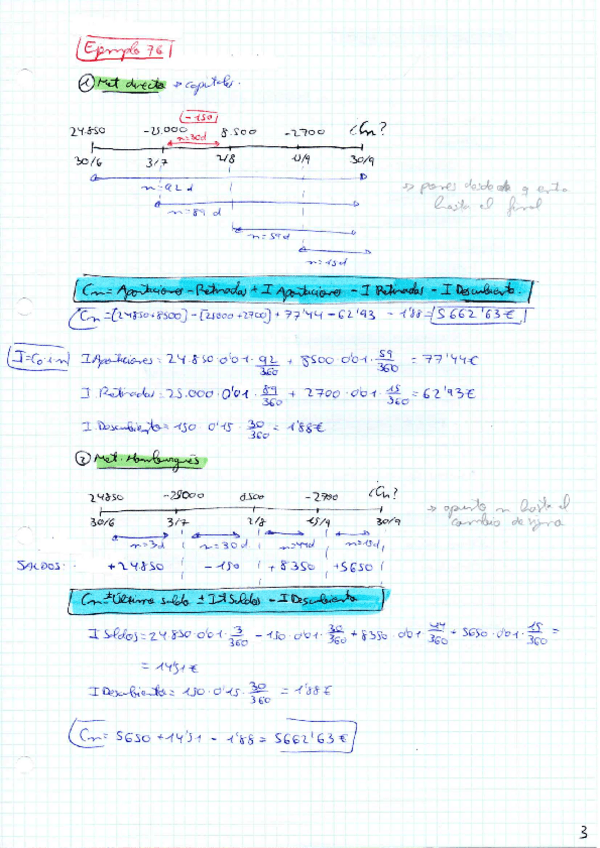 Ejemplo 76
① Met. directo → capitales.
-150
24850 -25.000 n=30d 8.500 -2700 ¿Cn?
30/6 3/7 2/8 15/9 30/9
n=92 d
n=89 d
n=59 d
n=15d
hasta el final
Cn = Aportaciones - Retiradas + I Aportaciones - I Retiradas - I Descubierto.
Cn = [24850+8500] - [25000+2700] + 77'44 - 62'93 - 1'88 = 5662'63 €
I=C0·i·n
I Aportaciones = 24.850·0'01·92/360 + 8500·0'01·59/360 = 77'44€
I Retiradas = 25.000·0'01·89/360 + 2700·0'01·15/360 = 62'93€
I Descubierto = 150·0'15·30/360 = 1'88€
② Met. Hamburgués
24850 -25000 8500 -2700 ¿Cn?
30/6 3/7 2/8 15/9 30/9
n=3d n=30d n=44d n=15d
SALDOS: +24850 -150 +8350 +5650
Cn = ± Último saldo ± I Saldos - I Descubierto
I Saldos = 24.850·0'01·3/360 - 150·0'01·30/360 + 8350·0'01·44/360 + 5650·0'01·15/360 =
= 14'51€
I Descubierto = 150·0'15·30/360 = 1'88€
Cn = 5650 + 14'51 - 1'88 = 5662'63€
3